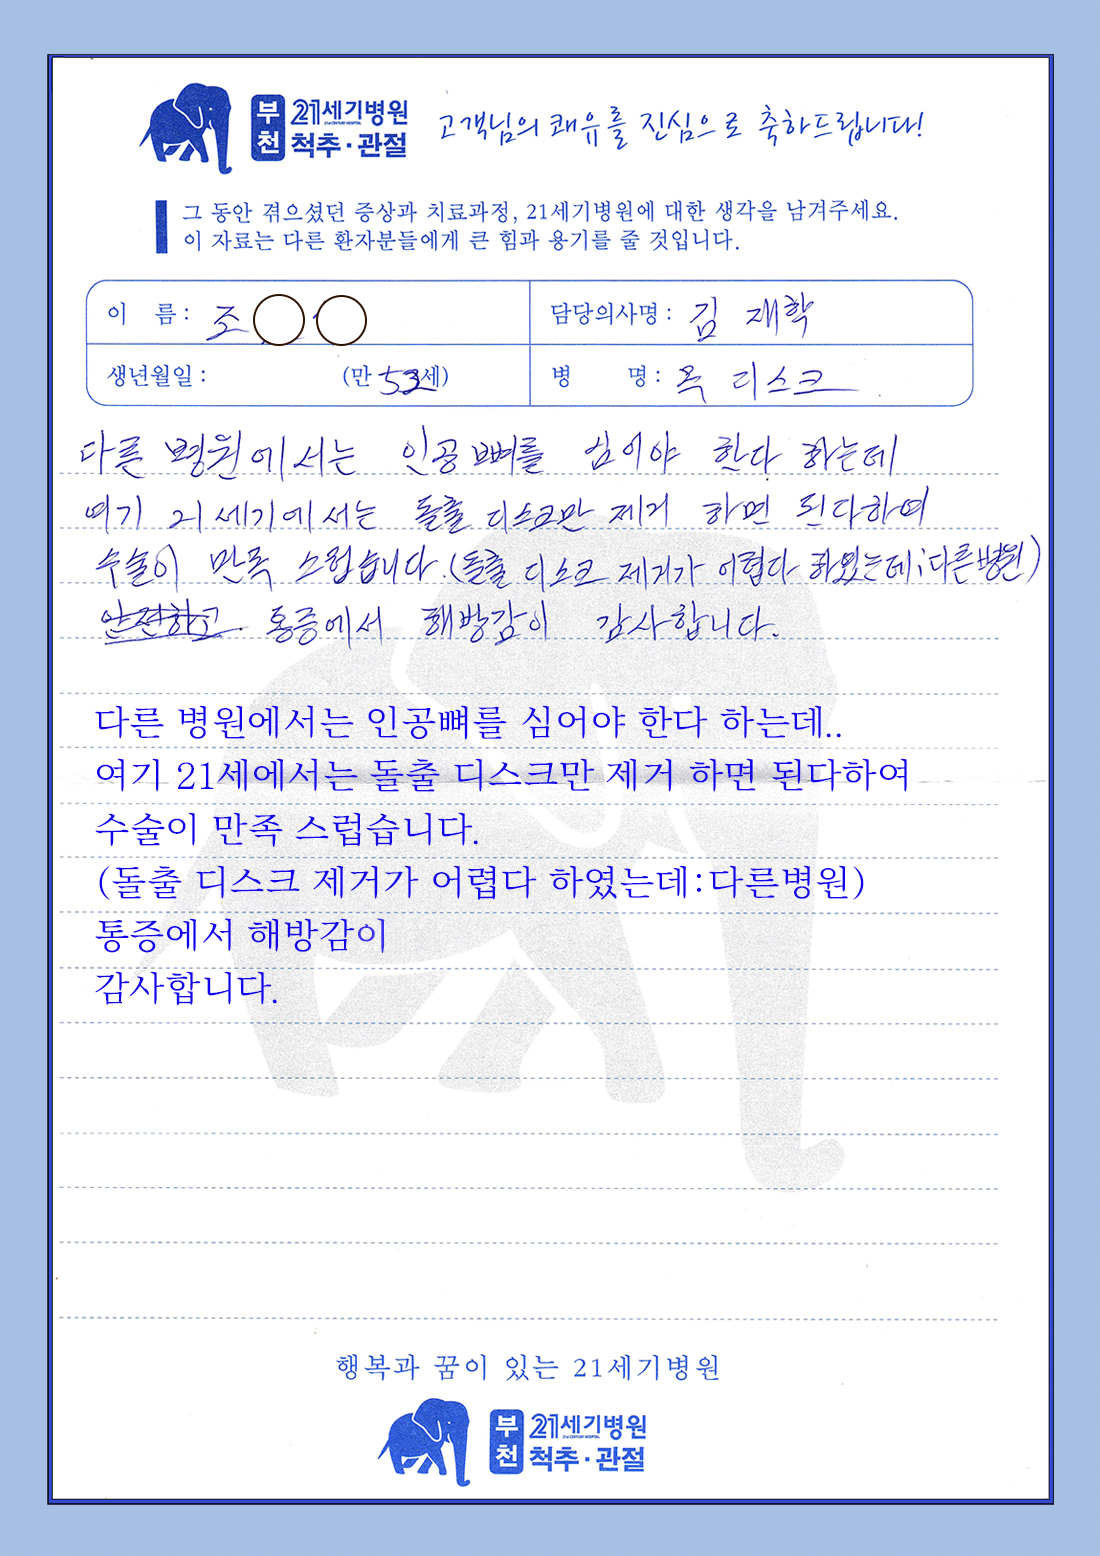 부천 21세기병원
21st CENTURY HOSPITAL
척추·관절
고객님의 쾌유를 진심으로 축하드립니다!
그 동안 겪으셨던 증상과 치료과정, 21세기병원에 대한 생각을 남겨주세요.
이 자료는 다른 환자분들에게 큰 힘과 용기를 줄 것입니다.
이 름 : 조
담당의사명 : 김 재학
생년월일 : (만 53세)
병 명 : 목 디스크
다른 병원에서는 인공뼈를 심어야 한다 하는데
여기 21세기에서는 돌출 디스크만 제거 하면 된다하여
수술이 만족 스럽습니다. (돌출 디스크 제거가 어렵다 하였는데:다른병원)
안전하고 통증에서 해방감이 감사합니다.
다른 병원에서는 인공뼈를 심어야 한다 하는데..
여기 21세에서는 돌출 디스크만 제거 하면 된다하여
수술이 만족 스럽습니다.
(돌출 디스크 제거가 어렵다 하였는데:다른병원)
통증에서 해방감이
감사합니다.
행복과 꿈이 있는 21세기병원
부천 21세기병원
21st CENTURY HOSPITAL
척추·관절